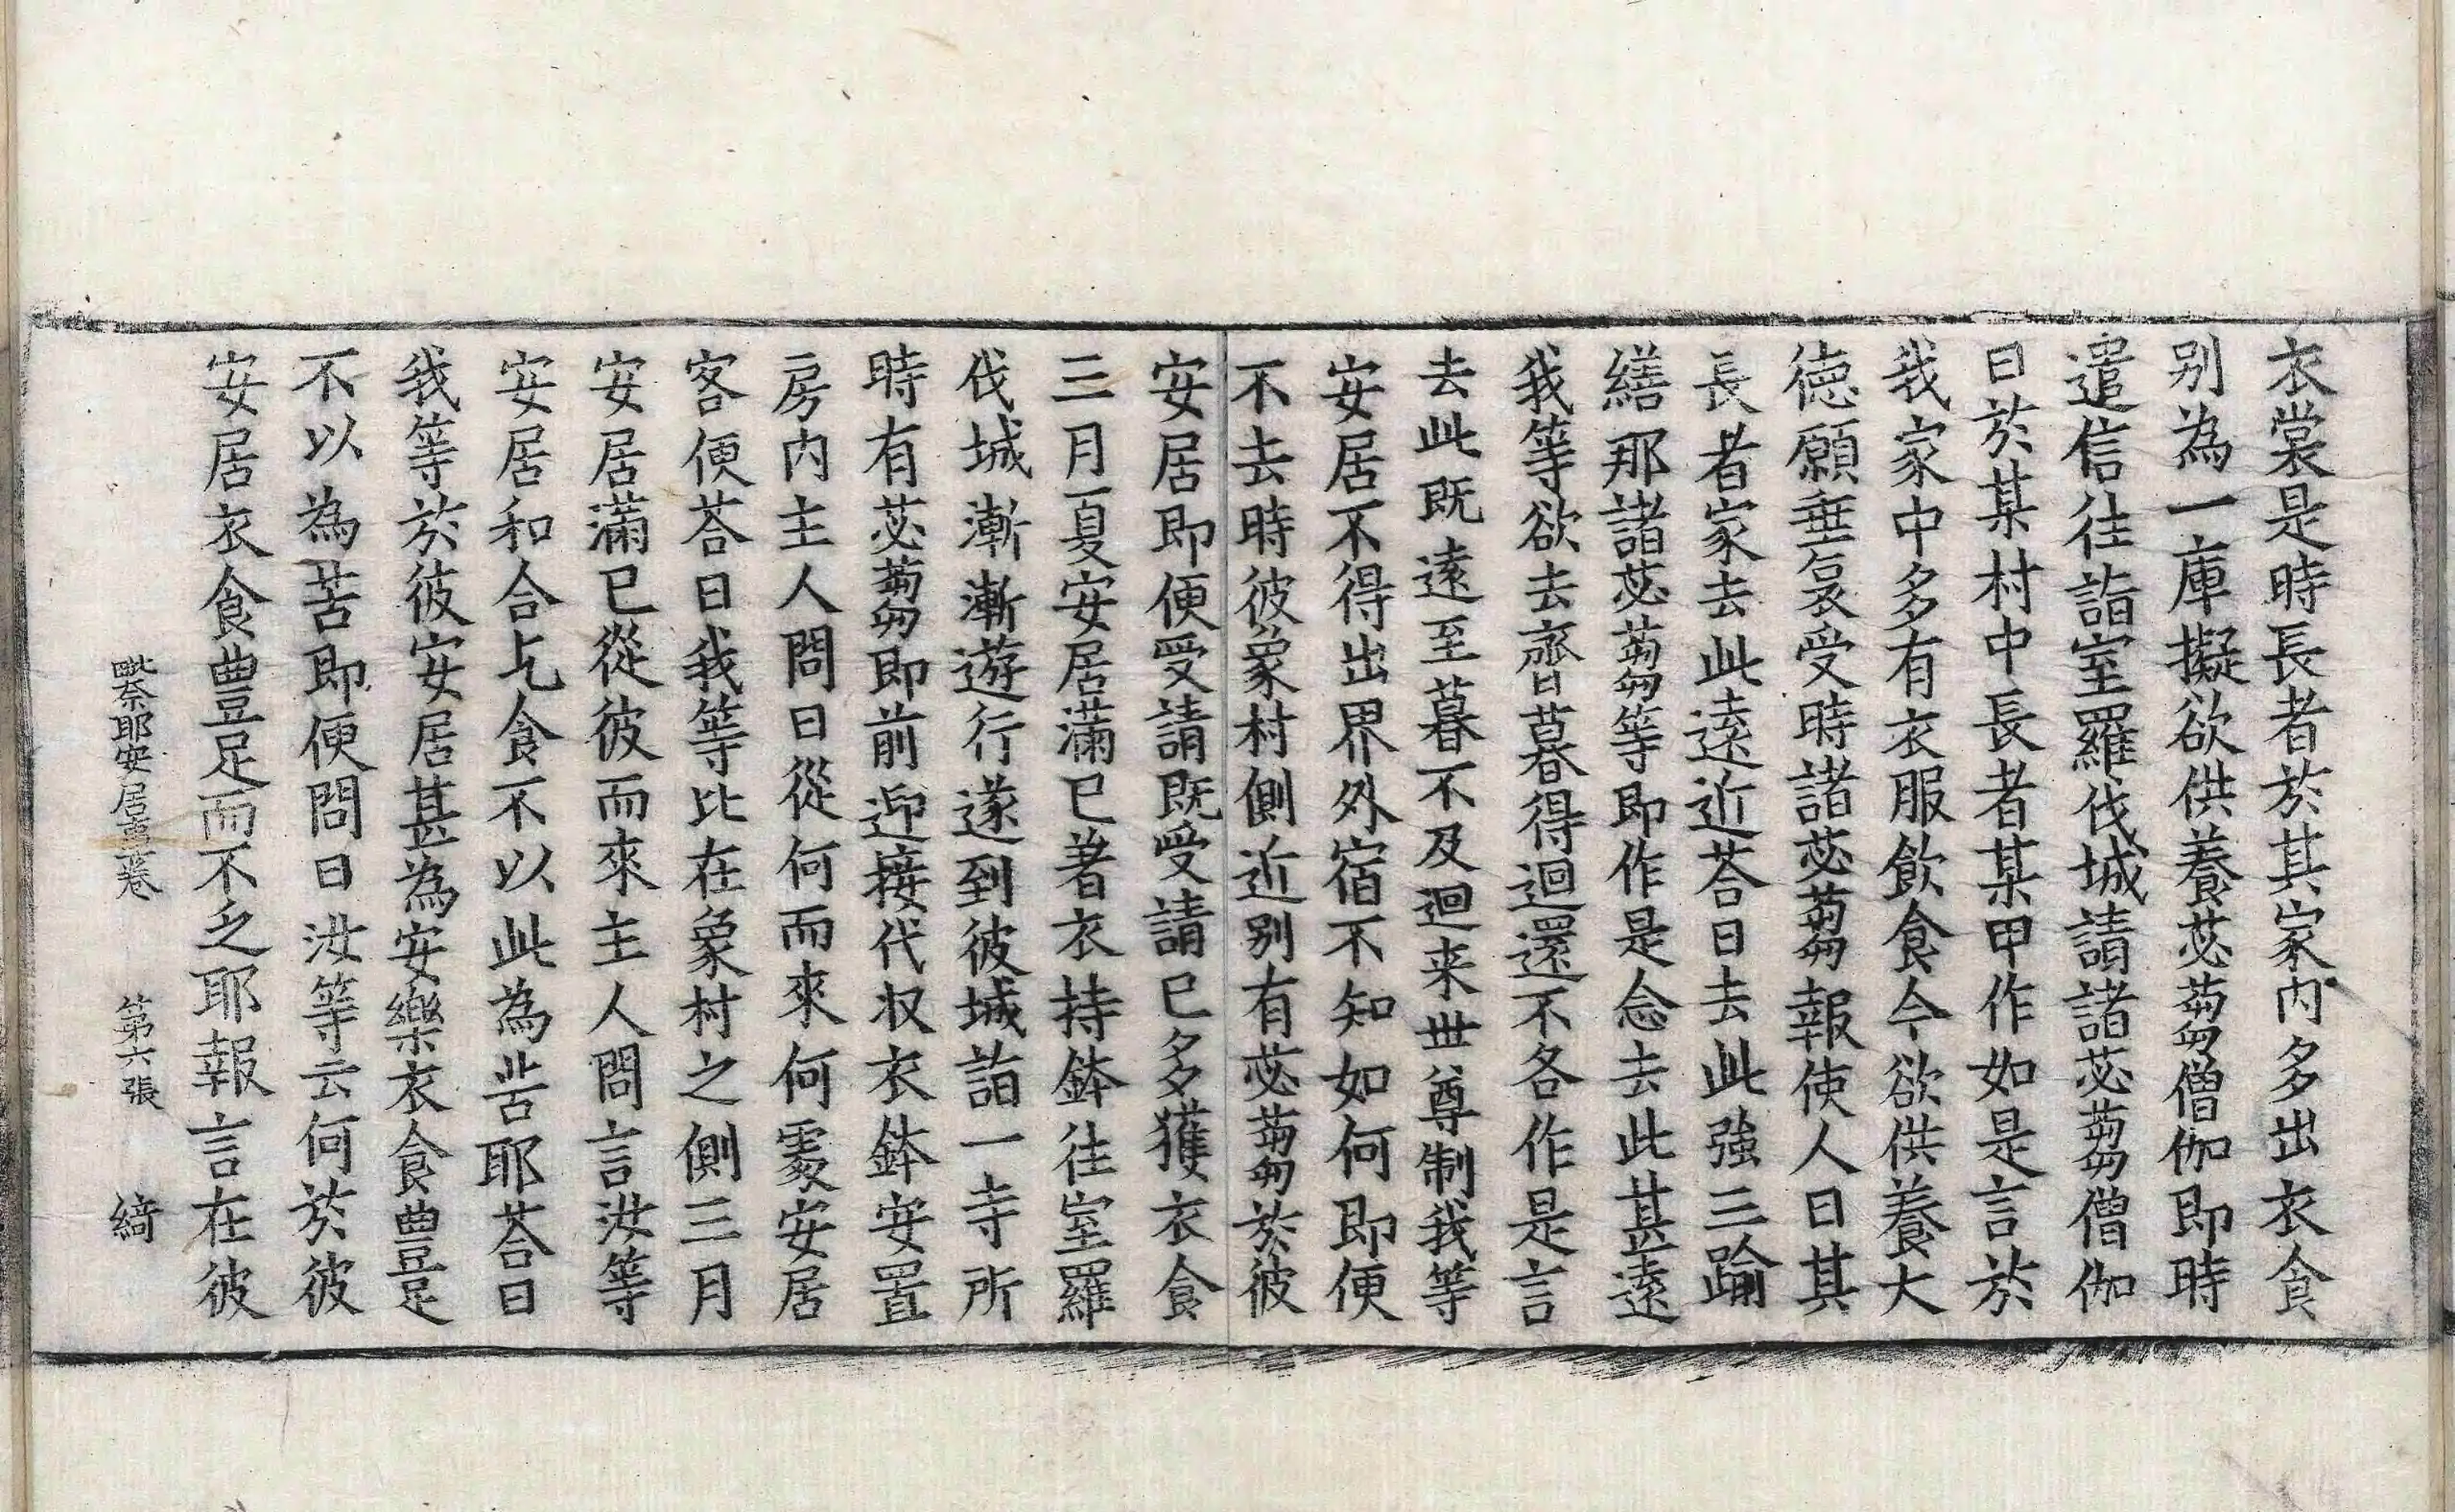 衣裳是時長者於其家内多出衣食
别為一庫擬欲供養苾蒭僧伽即時
遣信往詣室羅伐城請諸苾蒭僧伽
曰於某村中長者某甲作如是言於
我家中多有衣服飲食今欲供養大
徳願垂哀受時諸苾蒭報使人曰其
長者家去此遠近荅曰去此強三踰
繕那諸苾蒭等即作是念去此甚遠
我等欲去齊暮得迴還不各作是言
去此既遠至暮不及迴来世尊制我等
安居不得出界外宿不知如何即便
不去時彼象村側近别有苾蒭於彼
安居即便受請既受請已多獲衣食
三月夏安居滿已著衣持鉢往室羅
伐城漸漸遊行遂到彼城詣一寺所
時有苾蒭即前迎接代収衣鉢安置
房内主人問曰從何而來何處安居
客便荅曰我等比在象村之側三月
安居滿已從彼而來主人問言汝等
安居和合乞食不以此為苦耶荅曰
我等於彼安居甚為安樂衣食豊足
不以為苦即便問曰汝等云何於彼
安居衣食豊足而不乏耶報言在彼
毗奈耶安居事一卷 第六張 綺